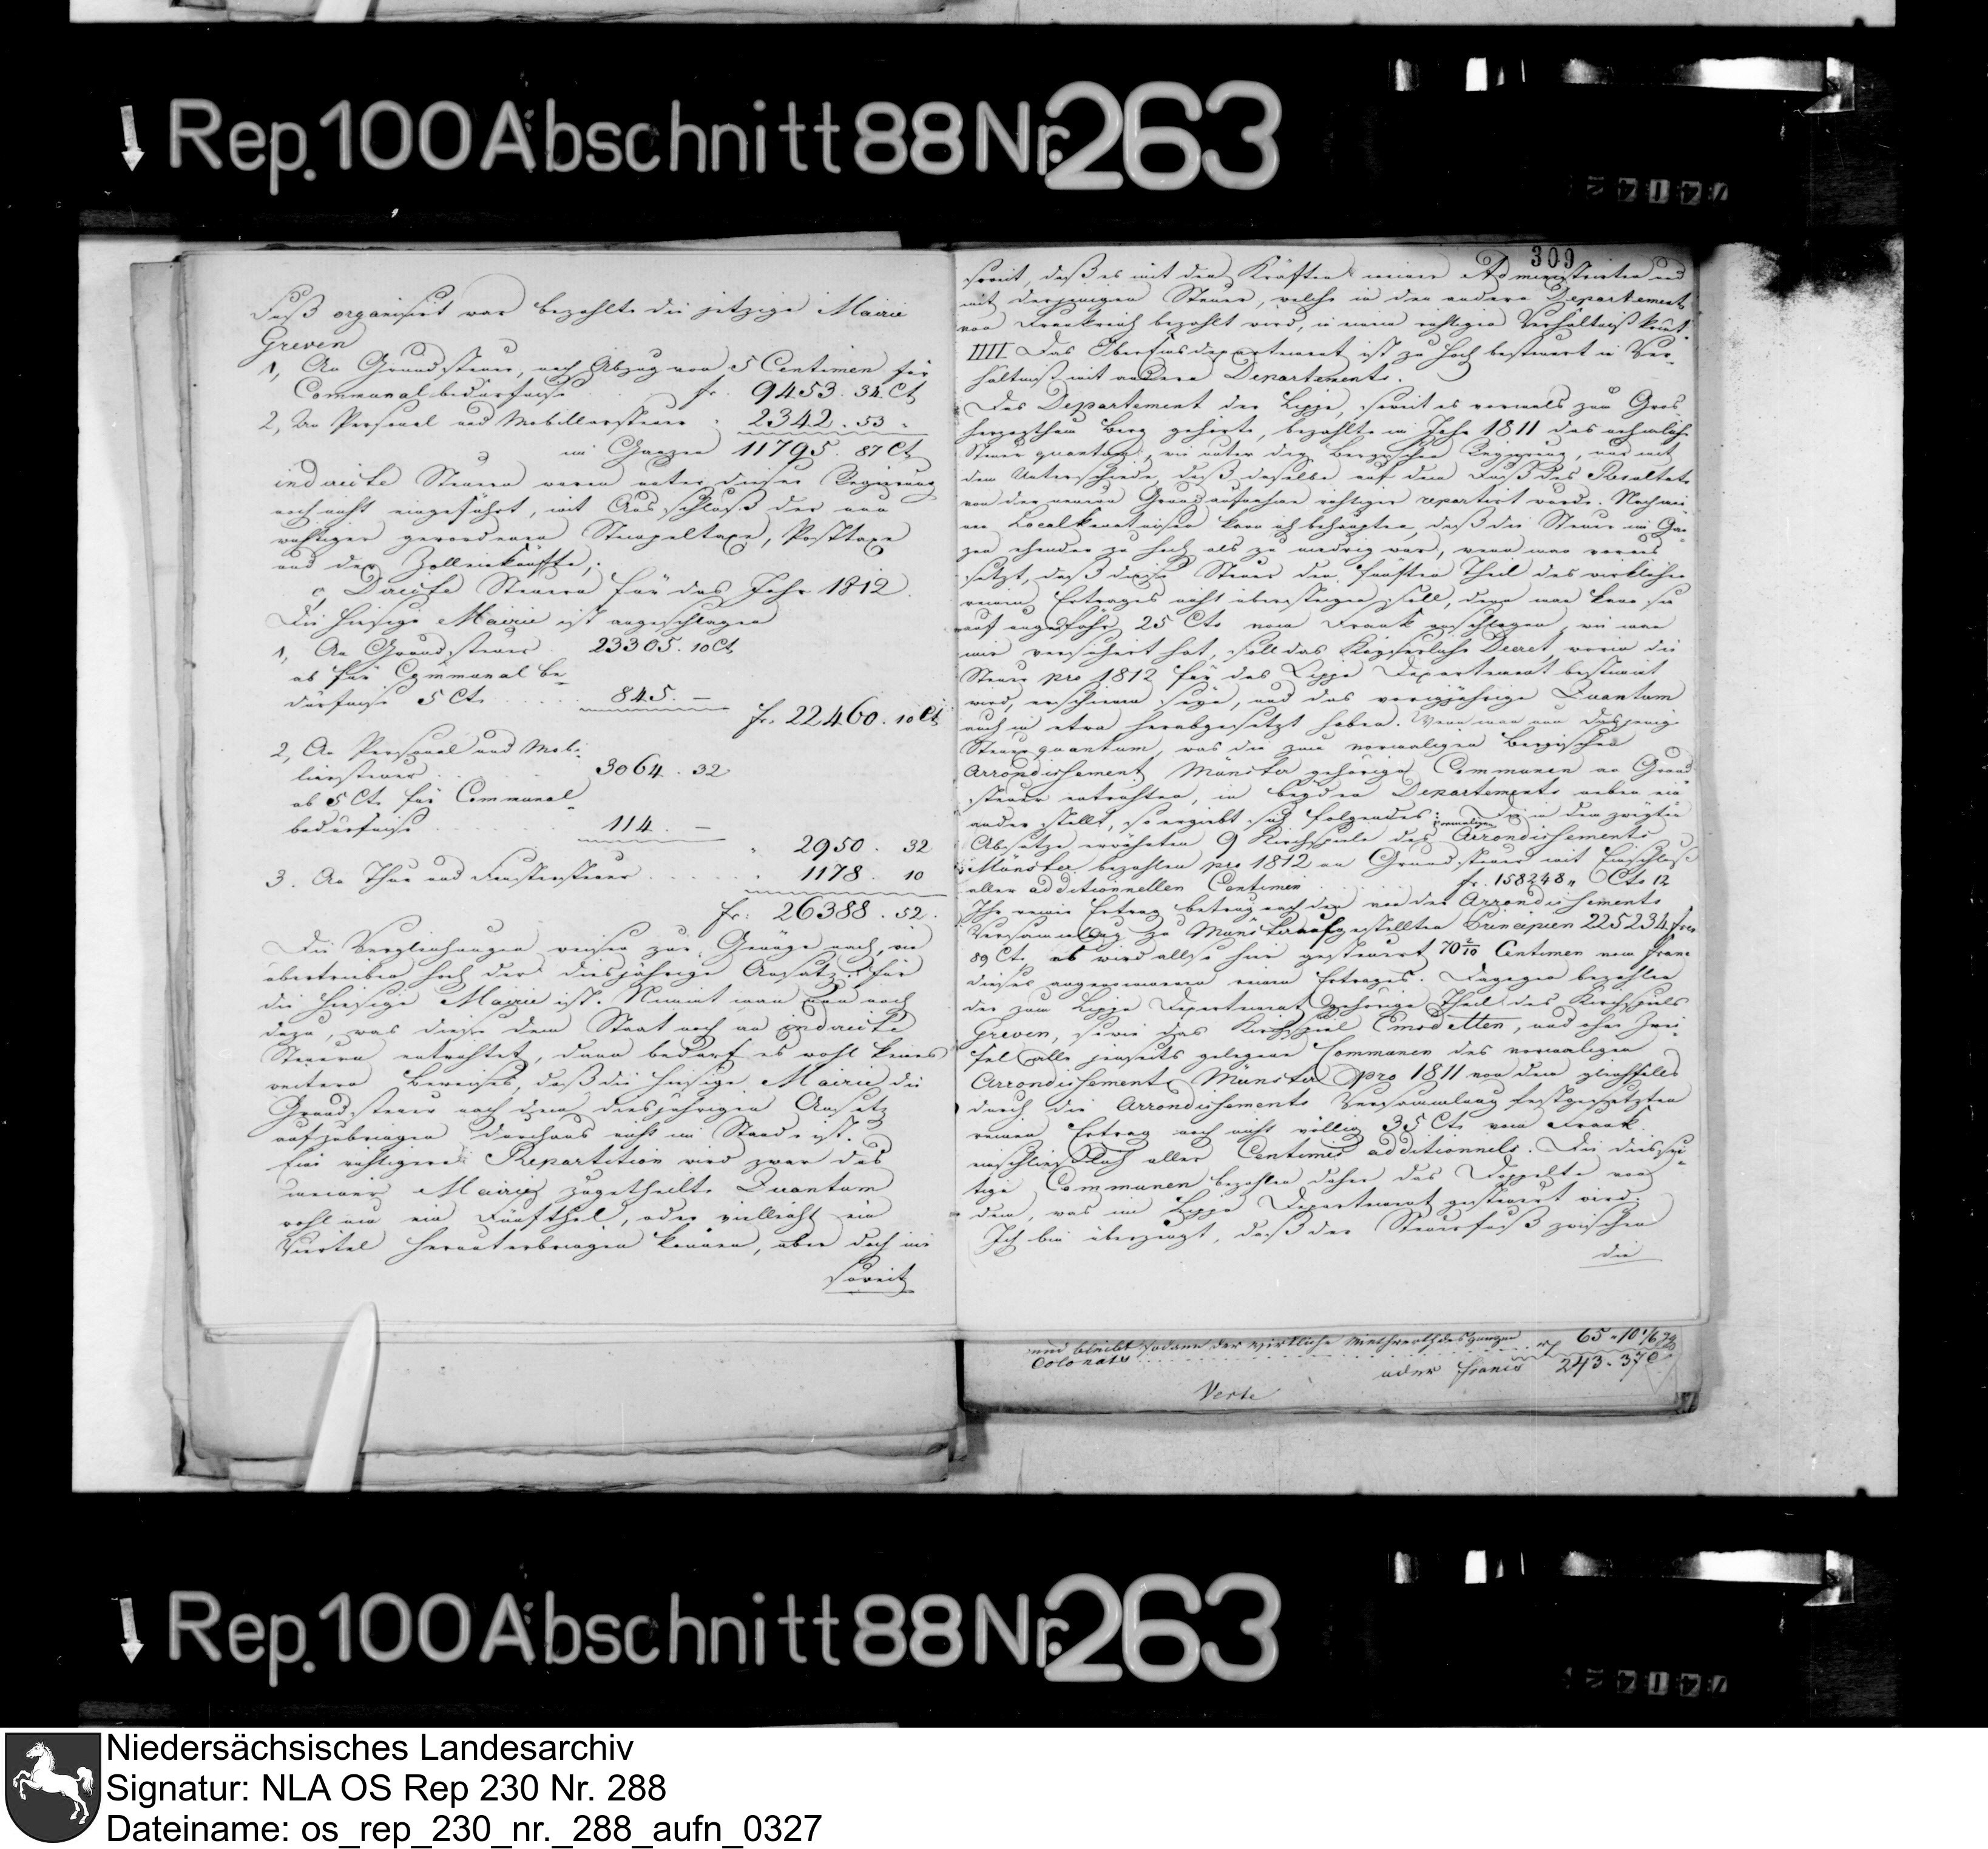 Rep. 100 Abschnitt 88 Nr. 263
309
Fuß organisirt war bezahlte die jetzige Mairie
Greven
1, An Grundsteuer, nach Abzug von 5 Centimen für
Communalbedürfniße fr. 9453. 34 Ct
2, An Personal und Mobiliarsteuer 2342. 53
im Ganzen 11795. 87 Ct
indirecte Steuern waren unter dieser Regierung
noch nicht eingeführt, mit Ausschluß der nun
wichtiger gewordenen Stempeltaxe, Posttaxe
und der Zolleinkünfte,
c, Directe Steuern für das Jahr 1812.
Die hiesige Mairie ist angeschlagen
1, An Grundsteuer 23305. 10 Ct
ab für Communal be-
dürfniße 5 Ct. 845. —
fr. 22460. 10 Ct
2, An Personal und Mobi-
liarsteuer 3064. 32
ab 5 Ct. für Communal
bedürfniße 114. —
2950. 32
3. An Thür und Fenstersteuer 1178. 10
fr: 26388. 52.
Die Vergleichungen weisen zur Genüge nach, wie
übertrieben hoch der diesjährige Ansatz für
die hiesige Mairie ist. Nimmt man nun noch
dazu, was diese dem Staat noch an indirecte
Steuern entrichtet, dann bedarf es wohl keines
weitern Beweises, daß die hiesige Mairie die
Grundsteuer nach dem diesjährigen Ansatz
aufzubringen durchaus nicht im Stande ist.
Eine richtigere Repartition wird zwar das
meiner Mairie zugetheilte Quantum
wohl um ein Fünfthel, oder vielleicht ein
Viertel herunterbringen können, aber doch nie
soweit
soweit, daß es mit den Kräften meiner Administrirten und
mit derjenigen Steuer, welche in den andern Departements
von Frankreich bezahlt wird, in einem richtigen Verhältniß kömt.
IIII. Das Oberemsdepartement ist zu hoch besteuert in Ver-
hältniß mit andern Departements.
Das Departement der Lippe, soweit es vormals zum Gros
herzogthum Berg gehörte, bezahlte im Jahr 1811 das nehmliche
Steuerquantum, wie unter der Bergischen Regierung, nur mit
dem Unterschiede, daß dasselbe auf dem Fuß des Resultats
von der neuern Grundaufnahme richtiger repartirt wurde. Nach mei-
nen Localkenntnißen kann ich behaupten, daß die Steuer im Gan-
zen ehender zu hoch als zu niedrig war, wenn man voraus
setzt, daß diese Steuer den fünften Theil des wirklichen
reinen Ertrages nicht übersteigen soll, denn man kann sie
auf ungefähr 25 Cts vom Frank anschlagen, wie man
mir versichert hat, soll das Kayserliche Decret, worin die
Steuer pro 1812 für das Lippe Departement bestimmt
wird, erschienen seyn, und das vorigjährige Quantum
auch in etwa herabgesetzt haben. Wenn man nun dasjenige
Steuerquantum, was die zum vormaligen Bergischen
Arrondissement Münster gehörige Communen an Grund
steuer entrichten, in beyden Departements neben ein
ander stellt, so ergiebt sich folgendes: Die in dem zweyten
Absatze erwähnten 9 Kirchspiele des vormaligen Arrondissements
Münster bezahlen pro 1812 an Grundsteuer mit Einschluß
aller additionnellen Centimen fr. 158248 „ Cts 12
Ihr reiner Ertrag betrug nach den von der Arrondissements
Versammlung zu Münster aufgestellten Principien 225234 frcs
89 Ct. es wird allso hier gesteuert 70 2/10 Centimen vom Franc
dieses angenommenen reinen Ertrages. Dagegen bezahlen
der zum Lippe Departement gehörige Theil des Kirchspiels
Greven, sowie das Kirchspiel Emsdetten, und ohne Zwei-
fel alle jenseits gelegene Communen des vormaligen
Arrondissements Münster pro 1811 von dem gleichfalls
durch die Arrondissements Versammlung festgesetzten
reinen Ertrag noch nicht völlig 35 Cts vom Frank.
einschließlich aller Centimes additionnels. Die diessei-
tige Communen bezahlen daher das Doppelte von
dem, was im Lippe Departement gesteuert wird.
Ich bin überzeugt, daß der Steuerfuß zwischen
die
und bleibt sodann der wirkliche Miethwerth des ganzen
Colonats 65 " 10 1/6
oder Francs 243. 37 C
Verte
Rep. 100 Abschnitt 88 Nr. 263
Niedersächsisches Landesarchiv
Signatur: NLA OS Rep 230 Nr. 288
Dateiname: os_rep_230_nr._288_aufn_0327